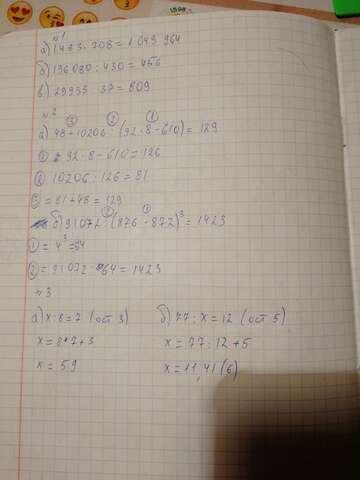 №1
а) 1483 · 708 = 1 049 964
б) 196080 : 430 = 456
в) 29933 : 37 = 809
№2
③ ② ①
а) 48 + 10206 : (92 · 8 - 610) = 129
① 92 · 8 - 610 = 126
② 10206 : 126 = 81
③ = 81 + 48 = 129
② ①
б) 91072 : (876 - 872)³ = 1423
① = 4³ = 64
② = 91072 : 64 = 1423
№3
а) x : 8 = 7 (ост 3) б) 77 : x = 12 (ост 5)
x = 8 · 7 + 3 x = 77 : 12 + 5
x = 59 x = 11,41(6)